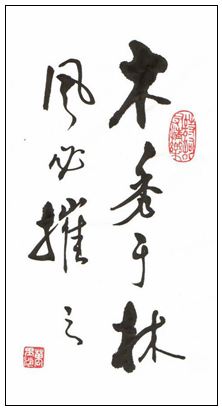 木秀于林
风必摧之